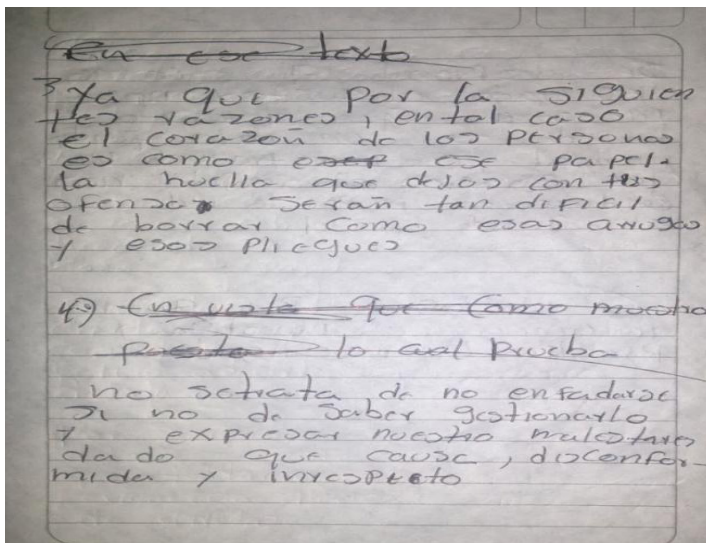 En ese texto
3 Ya que por la siguien
tes razones, en tal caso
el corazón de los personas
es como ese papel.
la huella que dejos con tus
ofensas serán tan dificil
de borrar como esas arrugas
y esos pliegues
4) En vista que como muestra
lo cual prueba
no setrata de no enfadarse
si no de saber gestionarlo
y expresar nuestro malestares
dado que cause, disconfor-
mida y inrespeto